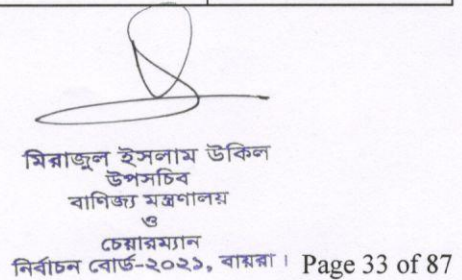 মিরাজুল ইসলাম উকিল
উপসচিব
বাণিজ্য মন্ত্রণালয়
ও
চেয়ারম্যান
নির্বাচন বোর্ড-২০২১, বায়রা। Page 33 of 87